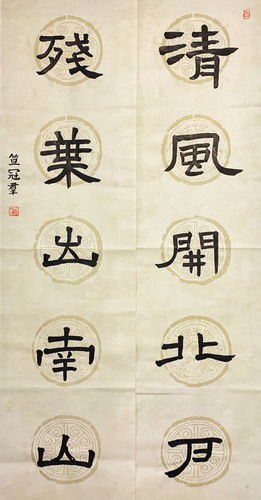 清風開北戶
殘葉出南山
笪冠羣